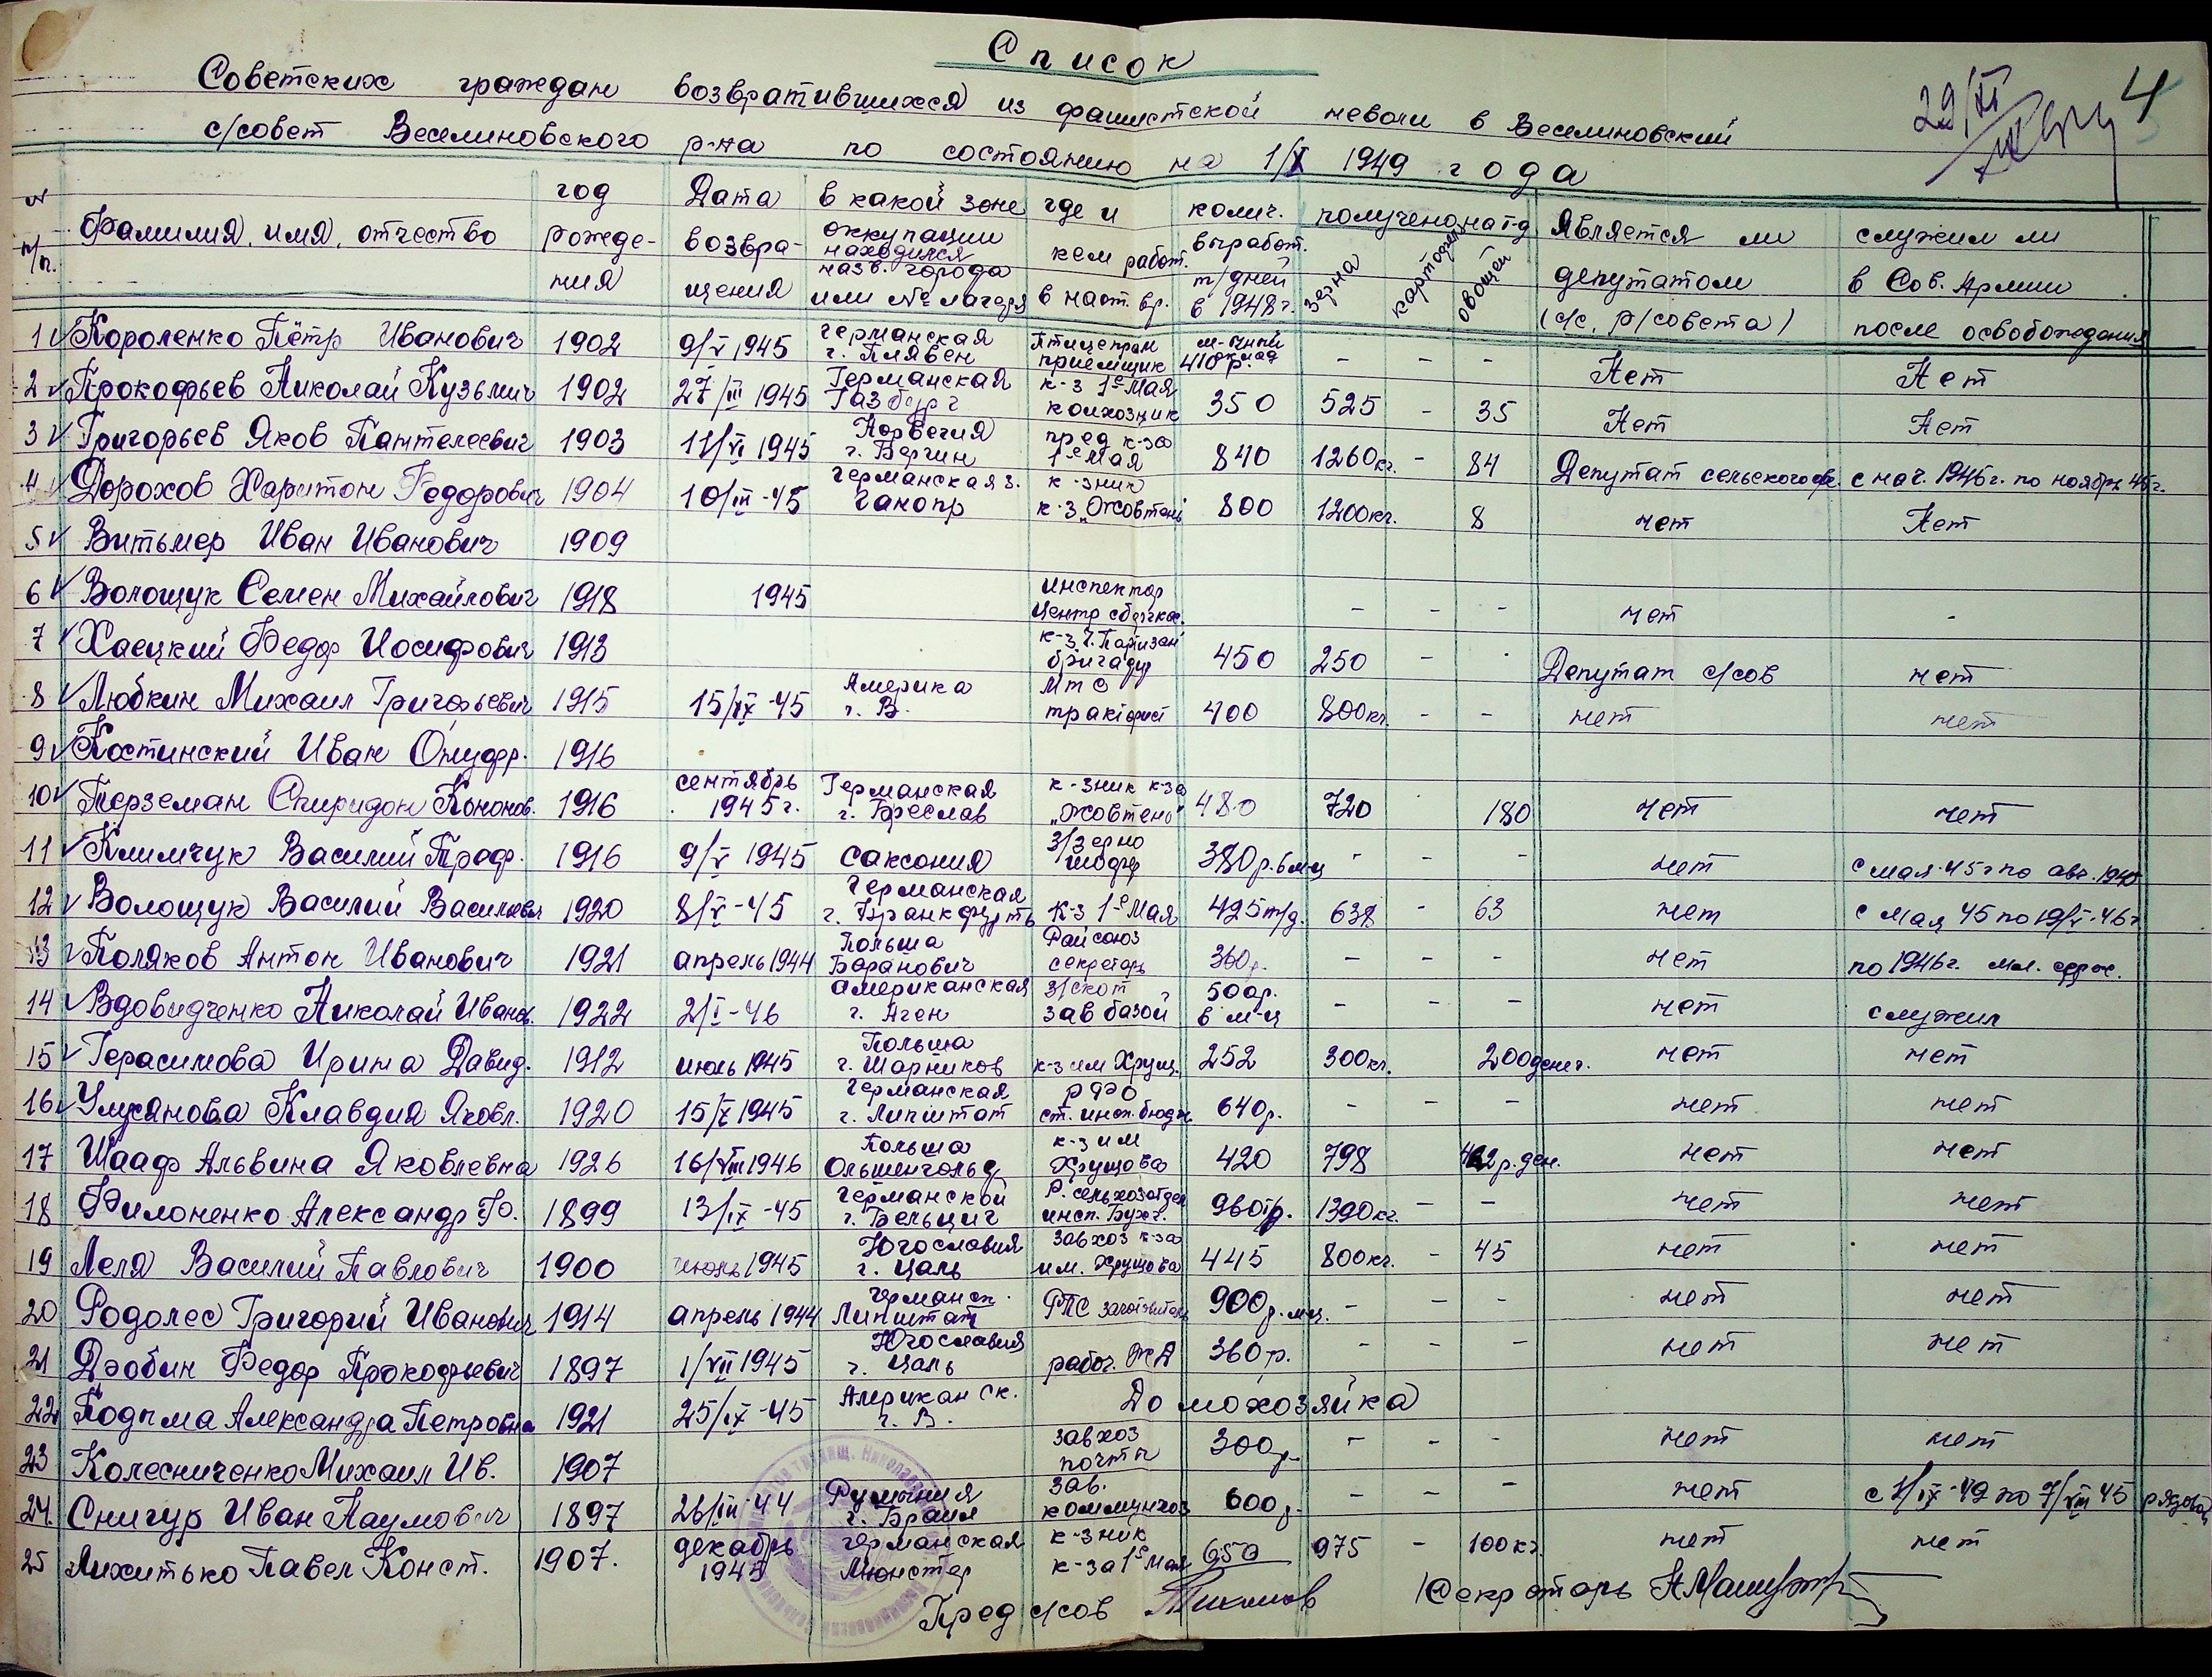 Список
Советских граждан возвратившихся из фашистской неволи в Веселиновский
с/совет Веселиновского р-на по состоянию на 1/X 1949 года
29/XI
4
№ п/п. Фамилия, имя, отчество год рожде-ния Дата возвра-щения в какой зоне оккупации находился назв. города или № лагеря где и кем работ. в наст. вр. колич. выработ. т/дней в 1948 г. получено на т-д зерна картофеля овощей Является ли депутатом (с/с, р/совета) служил ли в Сов. Армии после освобождения
1 Короленко Пётр Иванович 1902 9/V 1945 германская г. Плявен Птицепром приемщик 410 р. оклад - - - Нет Нет
2 Прокофьев Николай Кузьмич 1902 27/III 1945 Германская Газбург к-з 1е Мая колхозник 350 525 - 35 Нет Нет
3 Григорьев Яков Пантелеевич 1903 11/VI 1945 Норвегия г. Бергин пред к-за 1е Мая 840 1260кг. - 84 Депутат сельского с нач. 1946 г. по ноябрь 46 г.
4 Дорохов Харитон Федорович 1904 10/III-45 германская з. Ганопр к-зник к-з „Жовтень" 800 1200кг. 8 нет Нет
5 Витьмер Иван Иванович 1909
6 Волощук Семен Михайлович 1918 1945 инспектор - - - нет -
7 Хаецкий Федор Иосифович 1913 к-з Ч. Партизан бригадир 450 250 - - Депутат с/сов нет
8 Любкин Михаил Григорьевич 1915 15/IX-45 Америка г. В. МТС тракторист 400 800кг. - - нет нет
9 Костинский Иван Онуфр. 1916
10 Терземан Спиридон Кононов. 1916 сентябрь 1945 г. Германская г. Бреслав к-зник к-за „Жовтень" 480 720 180 нет нет
11 Климчук Василий Проф. 1916 9/V 1945 Саксония З/зерно шофер 380 р. в м-ц - - - нет с мая 45 г по авг. 1945
12 Волощук Василий Васильевич 1920 8/V-45 Германская г. Франкфурть К-з 1е Мая 425 т/д. 638 - 63 нет с мая 45 по 19/V-46 г
13 Поляков Антон Иванович 1921 апрель 1944 Польша Баранович Райсоюз секретарь 360 р. - - - нет по 1946 г. мл. серж.
14 Вдовидченко Николай Иванов. 1922 2/I-46 американская г. Аген З/скот зав базой 500р. в м-ц - - - нет служил
15 Герасимова Ирина Давид. 1912 июль 1945 Польша г. Шарников к-з им Хрущ. 252 300кг. 200 денег. нет нет
16 Улиянова Клавдия Яковл. 1920 15/X 1945 германская г. Липштат РФО ст. инсп. бюдж 640 р. - - - нет нет
17 Шааф Альвина Яковлевна 1926 16/VIII 1946 Польша Ольшенгольд к-з им Хрущова 420 798 р. ден. нет нет
18 Филоненко Александр Ф. 1899 13/IX-45 германской г. Бельциг Р. сельхозотдел инсп. Бухг. 960 т/р. 1390кг. - - нет нет
19 Леля Василий Павлович 1900 июль 1945 Югославия г. Цаль завхоз к-за им. Хрущова 445 800кг. - 45 нет нет
20 Родолес Григорий Иванович 1914 апрель 1944 Германск. Липштат РПС заготовитель 900 р. м-ц. - - - нет нет
21 Дзобин Федор Прокофьевич 1897 1/VII 1945 Югославия г. Цаль рабоч. ЖД 360 р. - - - нет нет
22 Подима Александра Петровна 1921 25/IX-45 Американск. г. В. Домохозяйка
23 Колесниченко Михаил Ив. 1907 завхоз почты 300р. - - - нет нет
24. Снигур Иван Наумович 1897 26/III-44 Румыния г. Браил зав. коммунхоз 600 р. - - - нет по 7/VIII 45 рядовой
25 Лихитько Павел Конст. 1907. декабрь 1945 германская Мюнстер к-зник к-за 1е Мая 650 975 - 100 кг. нет нет
Пред с/сов Секретарь